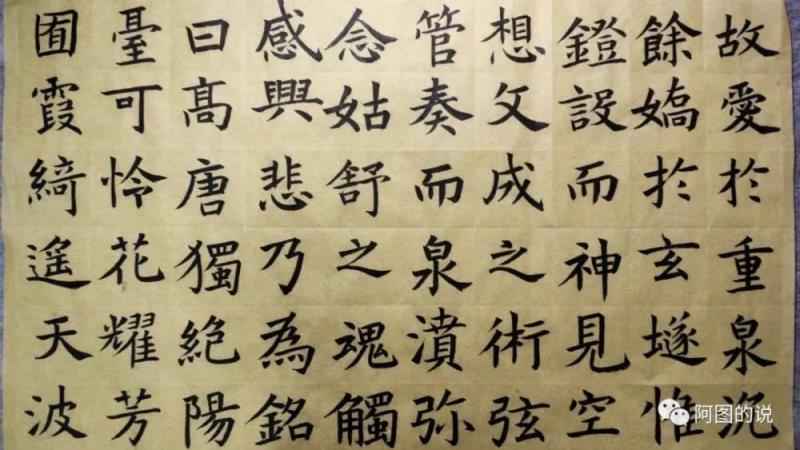 故愛於重泉沉
餘嬌於玄隧惟
鐙設而神見空
想文成之術弦
管奏而泉濆弥
念姑舒之魂觸
感興悲乃為銘
曰髙唐獨絶陽
臺可怜花耀芳
囿霞綺遥天波
阿图的说